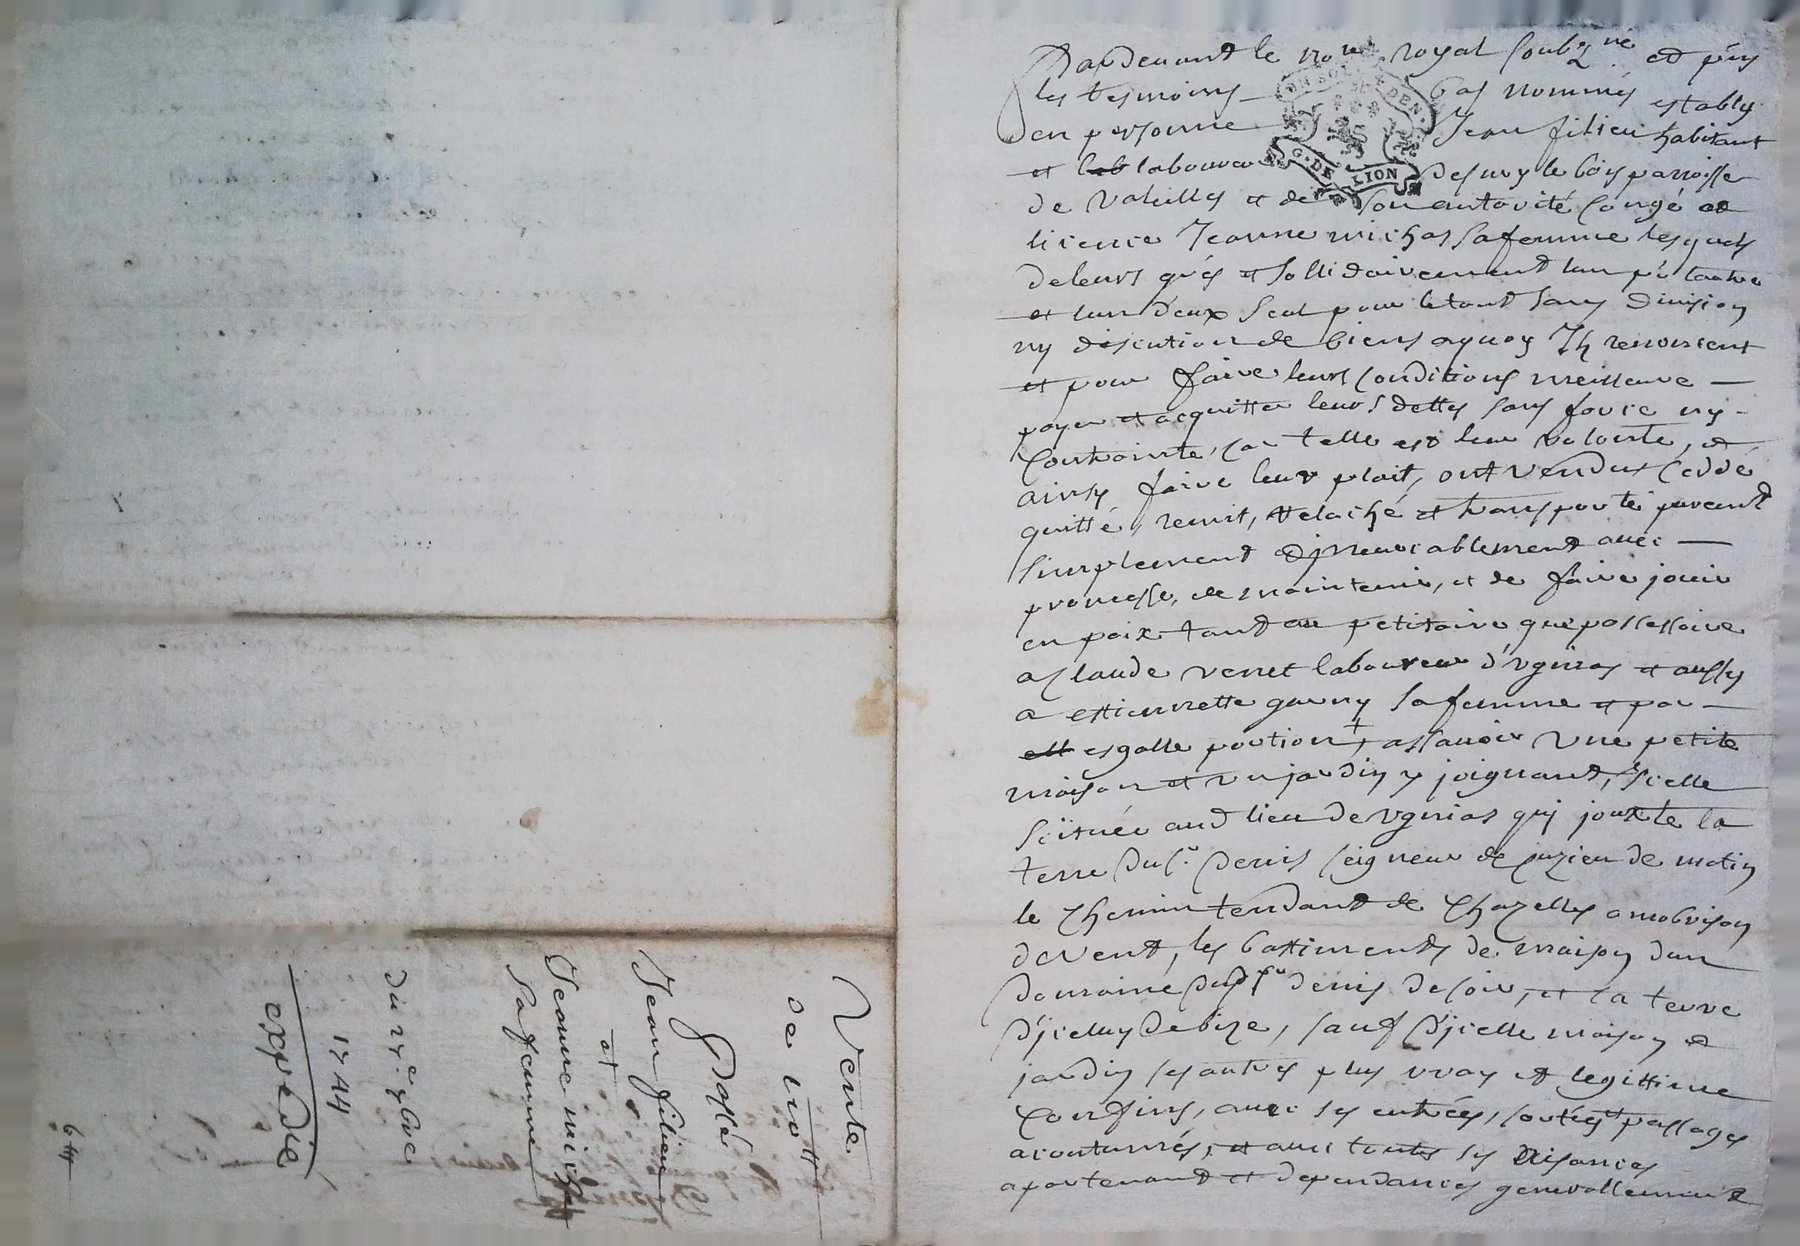 Vente
de 110 tt
Passé
Jean filieu
et
Jeanne michas
sa femme
du 27e 9bre
1744
expedié
644
Pardevant le nore royal soubzné et pñs
les tesmoins bas nommés estably
en personne Jean filieu habitant
et lab laboureur de le bois parroisse
de Valeilles et de son autorité congé et
licence Jeanne michas sa femme lesquels
de leurs grés et sollidairement lun pr lautre
et lun deux seul pour le tout sans division
ny discution de biens aquoy Ils renoncent
et pour faire leurs conditions meilleure
payer et acquitter leurs dettes sans force ny
contrainte, car telle est leur volonté, et
ainsy faire leur plait, ont vendus ceddé
quitté, remit, relaché et transporté purement
simplement et jrrevocablement avec
promesse, de maintenir, et de faire jouir
en paix tant au petitoire que possessoire
a Claude venet laboureur d'ugnias et aussy
a estiennette sa femme et par
ell esgalle portion + assavoir une petite
maison et un jardin y joignant, Icelle
scituée aud lieu de ugnias qui jouxte la
terre du sr. denis seigneur de cuzieu de matin
le chemin tendant de Chazelles a mobrison
de vent, les battiments de maison dun
domaine dud sr denis de soir, et la terre
d'jcelluy de bize, sauf d'jcelle maison et
jardin ses autres plus vray et legittime
confins, avec ses entrées, sorties passages
acoutumés, et avec toutes ses aisances
apartenant et dependances generallement
EN SOL DEN.
G. DE LION